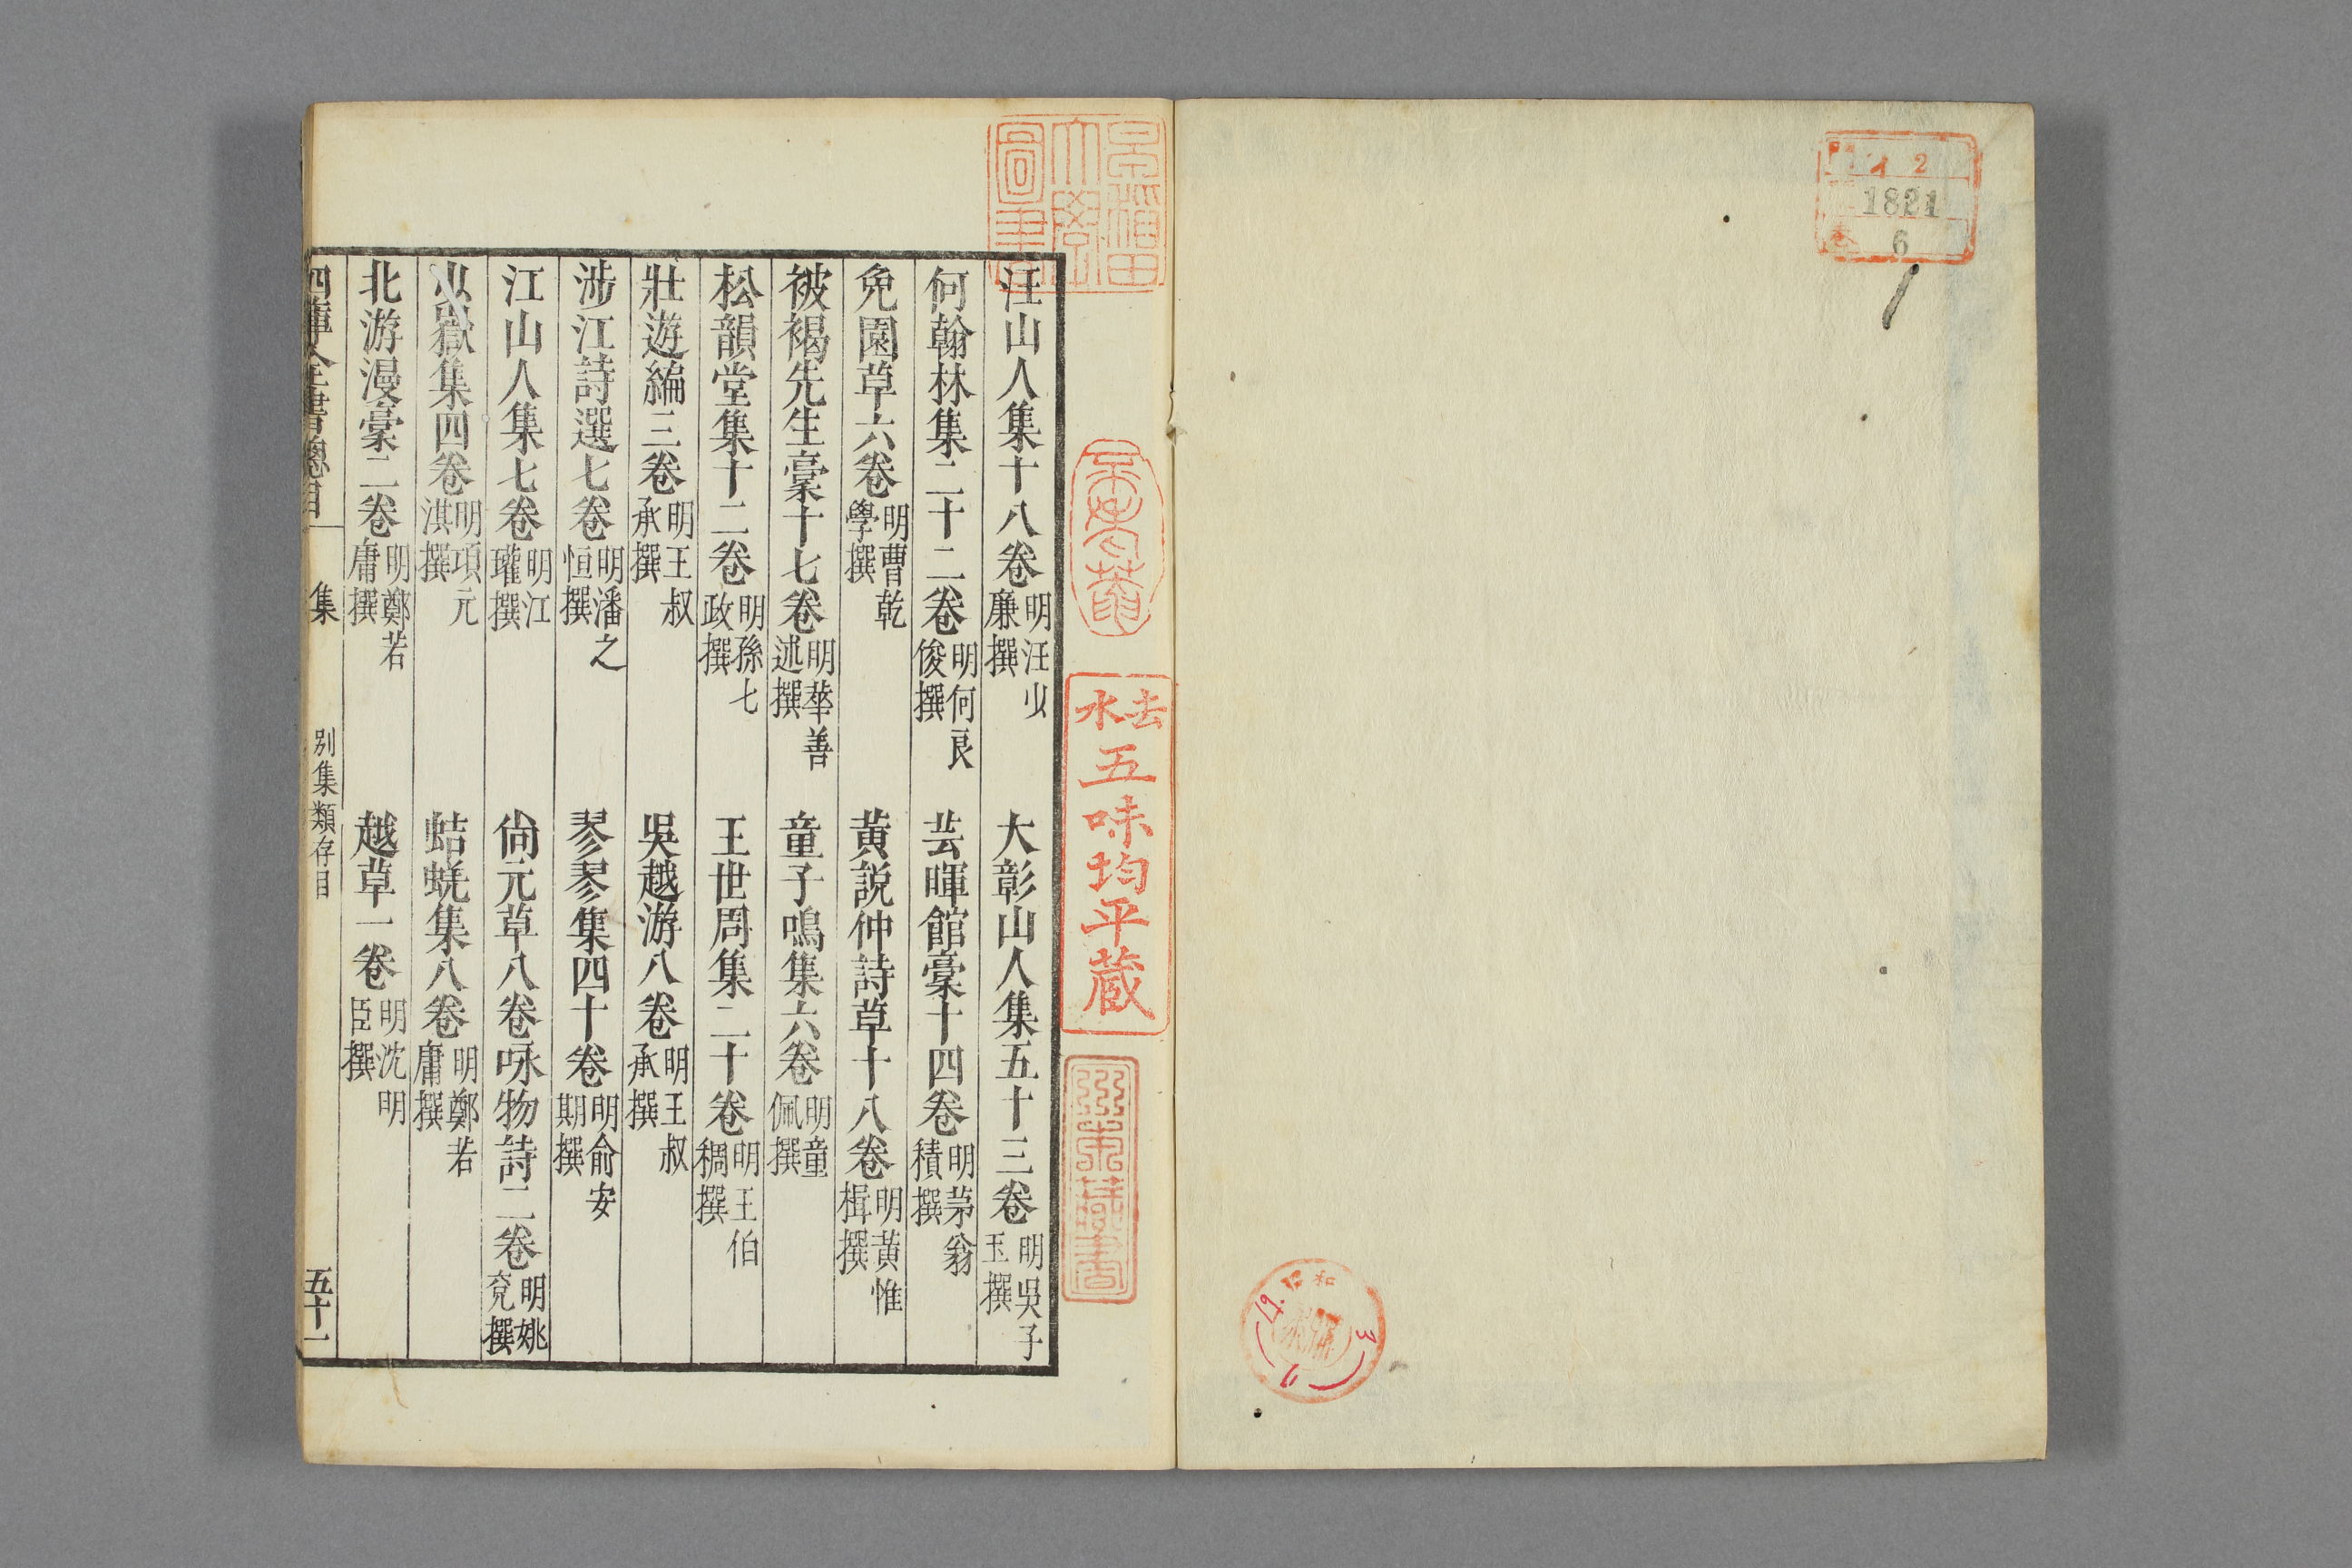 汪山人集十八卷明汪少廉撰
大彰山人集五十三卷明吳子玉撰
何翰林集二十二卷明何良俊撰
芸暉館稾十四卷明茅翁積撰
兔園草六卷明曹乾學撰
黃説仲詩草十八卷明黃惟楫撰
被褐先生稾十七卷明華善述撰
童子鳴集六卷明童佩撰
松韻堂集十二卷明孫七政撰
王世周集二十卷明王伯稠撰
壯遊編三卷明王叔承撰
吳越游八卷明王叔承撰
涉江詩選七卷明潘之恒撰
翏翏集四十卷明俞安期撰
江山人集七卷明江瓘撰
尙元草八卷咏物詩二卷明姚兗撰
嶽集四卷明項元淇撰
蛣蜣集八卷明鄭若庸撰
北游漫稾二卷明鄭若庸撰
越草一卷明沈明臣撰
四庫全書總目
集
別集類存目
五十一
早稻田大學圖書
去水五味均平蔵
イ2
1821
6